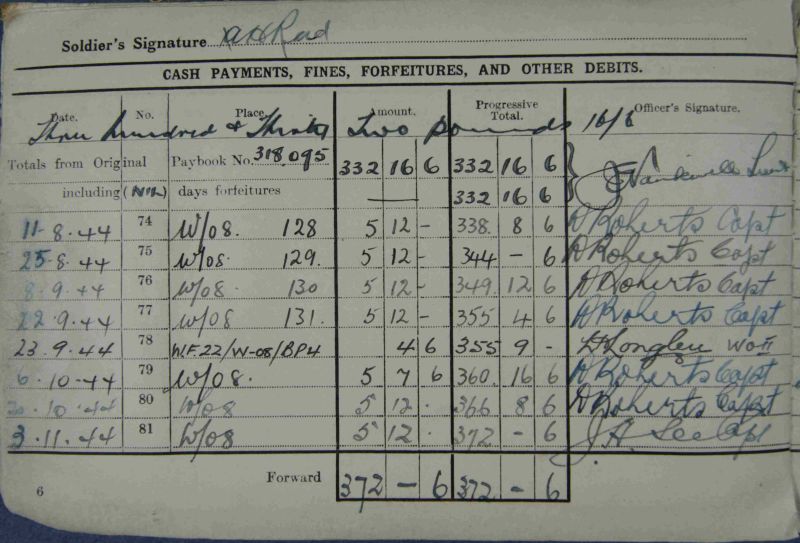 Soldier's Signature
CASH PAYMENTS, FINES, FORFEITURES, AND OTHER DEBITS.
Date. No. Place. Amount. Progressive Total. Officer's Signature.
Three hundred & Thirty Two pounds 16/6
Totals from Original Paybook No. 318,095 332 16 6 332 16 6
including (NIL) days forfeitures — 332 16 6
11-8-44 74 W/08. 128 5 12 - 338. 8 6 Roberts Capt
25-8-44 75 W/08. 129. 5 12 - 344 - 6 Roberts Capt
8.9.44 76 W/08 130 5 12 - 349 12 6 Roberts Capt
22.9.44 77 W/08 131. 5 12 - 355 4 6 Roberts Capt
23.9.44 78 W.F.22/W-08/BP4 4 6 355 9 - WO II
6.10.44 79 W/08. 5 7 6 360. 16 6 Roberts Capt
10.44 80 W/08 5 12 . 366 8 6 Roberts Capt
3.11.44 81 W/08 5 12 . 372 - 6 J.A. Lee Capt
Forward 372 - 6 372 - 6
6